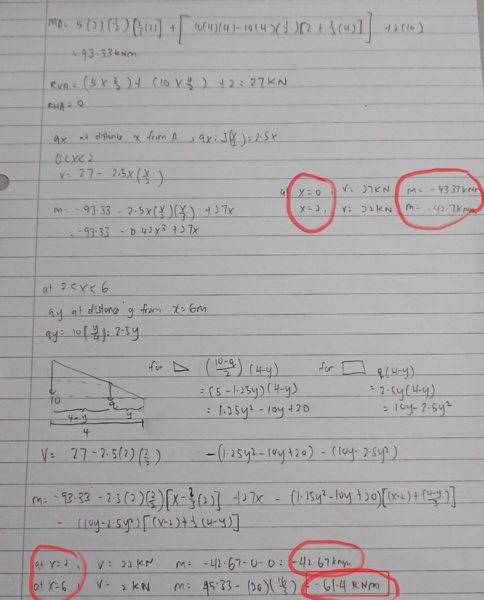 MA = 5(2)(½)[⅔(2)] + [10(4)(4) - 10(4)(½)[2 + ⅓(4)]] + 2(10)
= 93.33 kNm
RVA = (5 x ⅔) + (10 x 4/2) + 2 = 27 KN
RHA = 0
qx at distance x from A, qx = 5(x/2) = 2.5x
0<x<2
V = 27 - 2.5x(x/2)
at x=0, V= 27KN m= -93.33 kNm
x=2, V= 22KN m= -42.7kNm
m = -93.33 - 2.5x(x/2)(x/3) + 27x
= -93.33 - 0.42x³ + 27x
at 2<x<6
qy at distance y from x=6m
qy = 10(y/4) = 2.5y
for (10-q/2)(4-y) for q(4-y)
= (5-1.25y)(4-y) = 2.5y(4-y)
= 1.25y² - 10y + 20 = 10y - 2.5y²
10 q
4-y y
4
V = 27 - 2.5(2)(⅔) - (1.25y² - 10y + 20) - (10y - 2.5y²)
m = -93.33 - 2.5(2)(⅔)[x - ⅔(2)] + 27x - (1.25y² - 10y + 20)[(x-2) + (4-y/3)]
- (10y - 2.5y²)[(x-2) + ½(4-y)]
at x=2, V= 22KN m= -42.67-0-0 = -42.67kNm
at x=6, V= 2KN m= 45.33 - (20) = -61.4 KNm